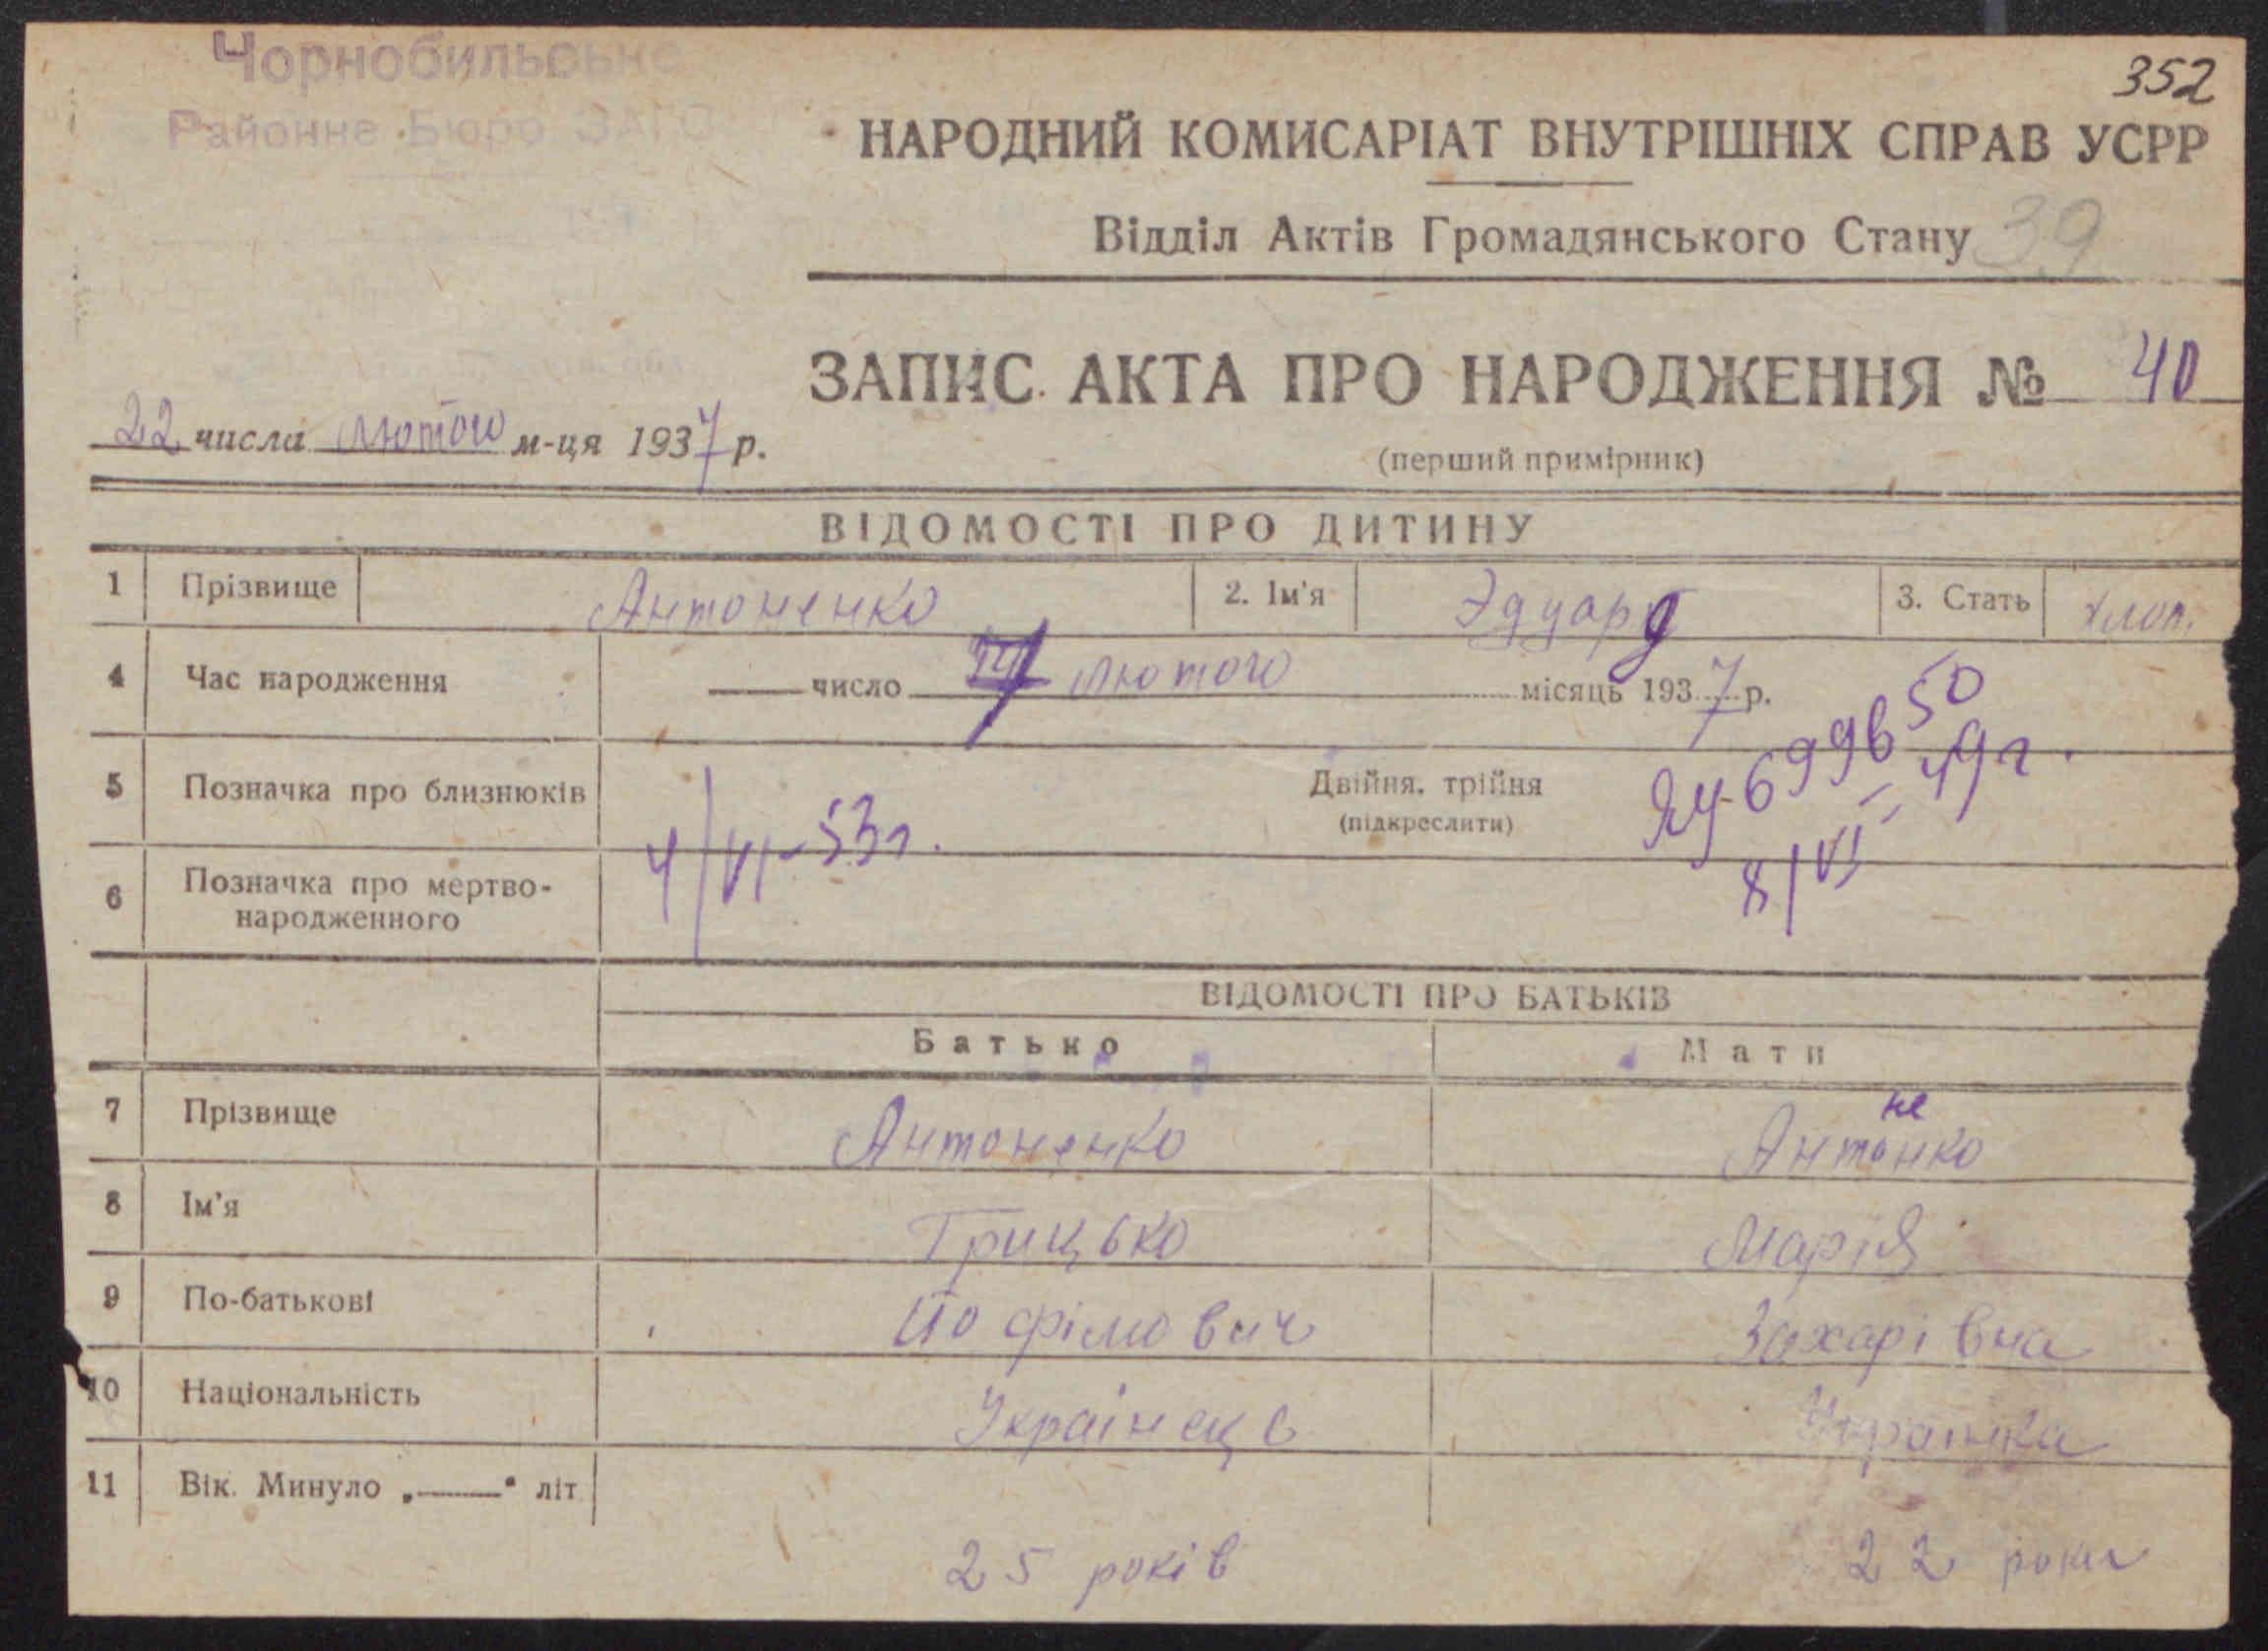 Чорнобильське
Районне Бюро ЗАГС
352
НАРОДНИЙ КОМИСАРІАТ ВНУТРІШНІХ СПРАВ УСРР
Відділ Актів Громадянського Стану 39
ЗАПИС АКТА ПРО НАРОДЖЕННЯ № 40
22 числа лютого м-ця 1937 р.
(перший примірник)
ВІДОМОСТІ ПРО ДИТИНУ
1 Прізвище Антоненко 2. Ім'я Эдуард 3. Стать хлоп.
4 Час народження число лютого місяць 1937 р.
5 Позначка про близнюків Двійня, трійня
(підкреслити)
50
ЯУ-69996
8/VI-49г.
4/VI-53г.
6 Позначка про мертво-
народженного
ВІДОМОСТІ ПРО БАТЬКІВ
Батько Мати
не
7 Прізвище Антоненко Антонко
8 Ім'я Грицько Марія
9 По-батькові Йофімович Захарівна
10 Національність Українець Українка
11 Вік. Минуло „——“ літ
25 років 22 роки